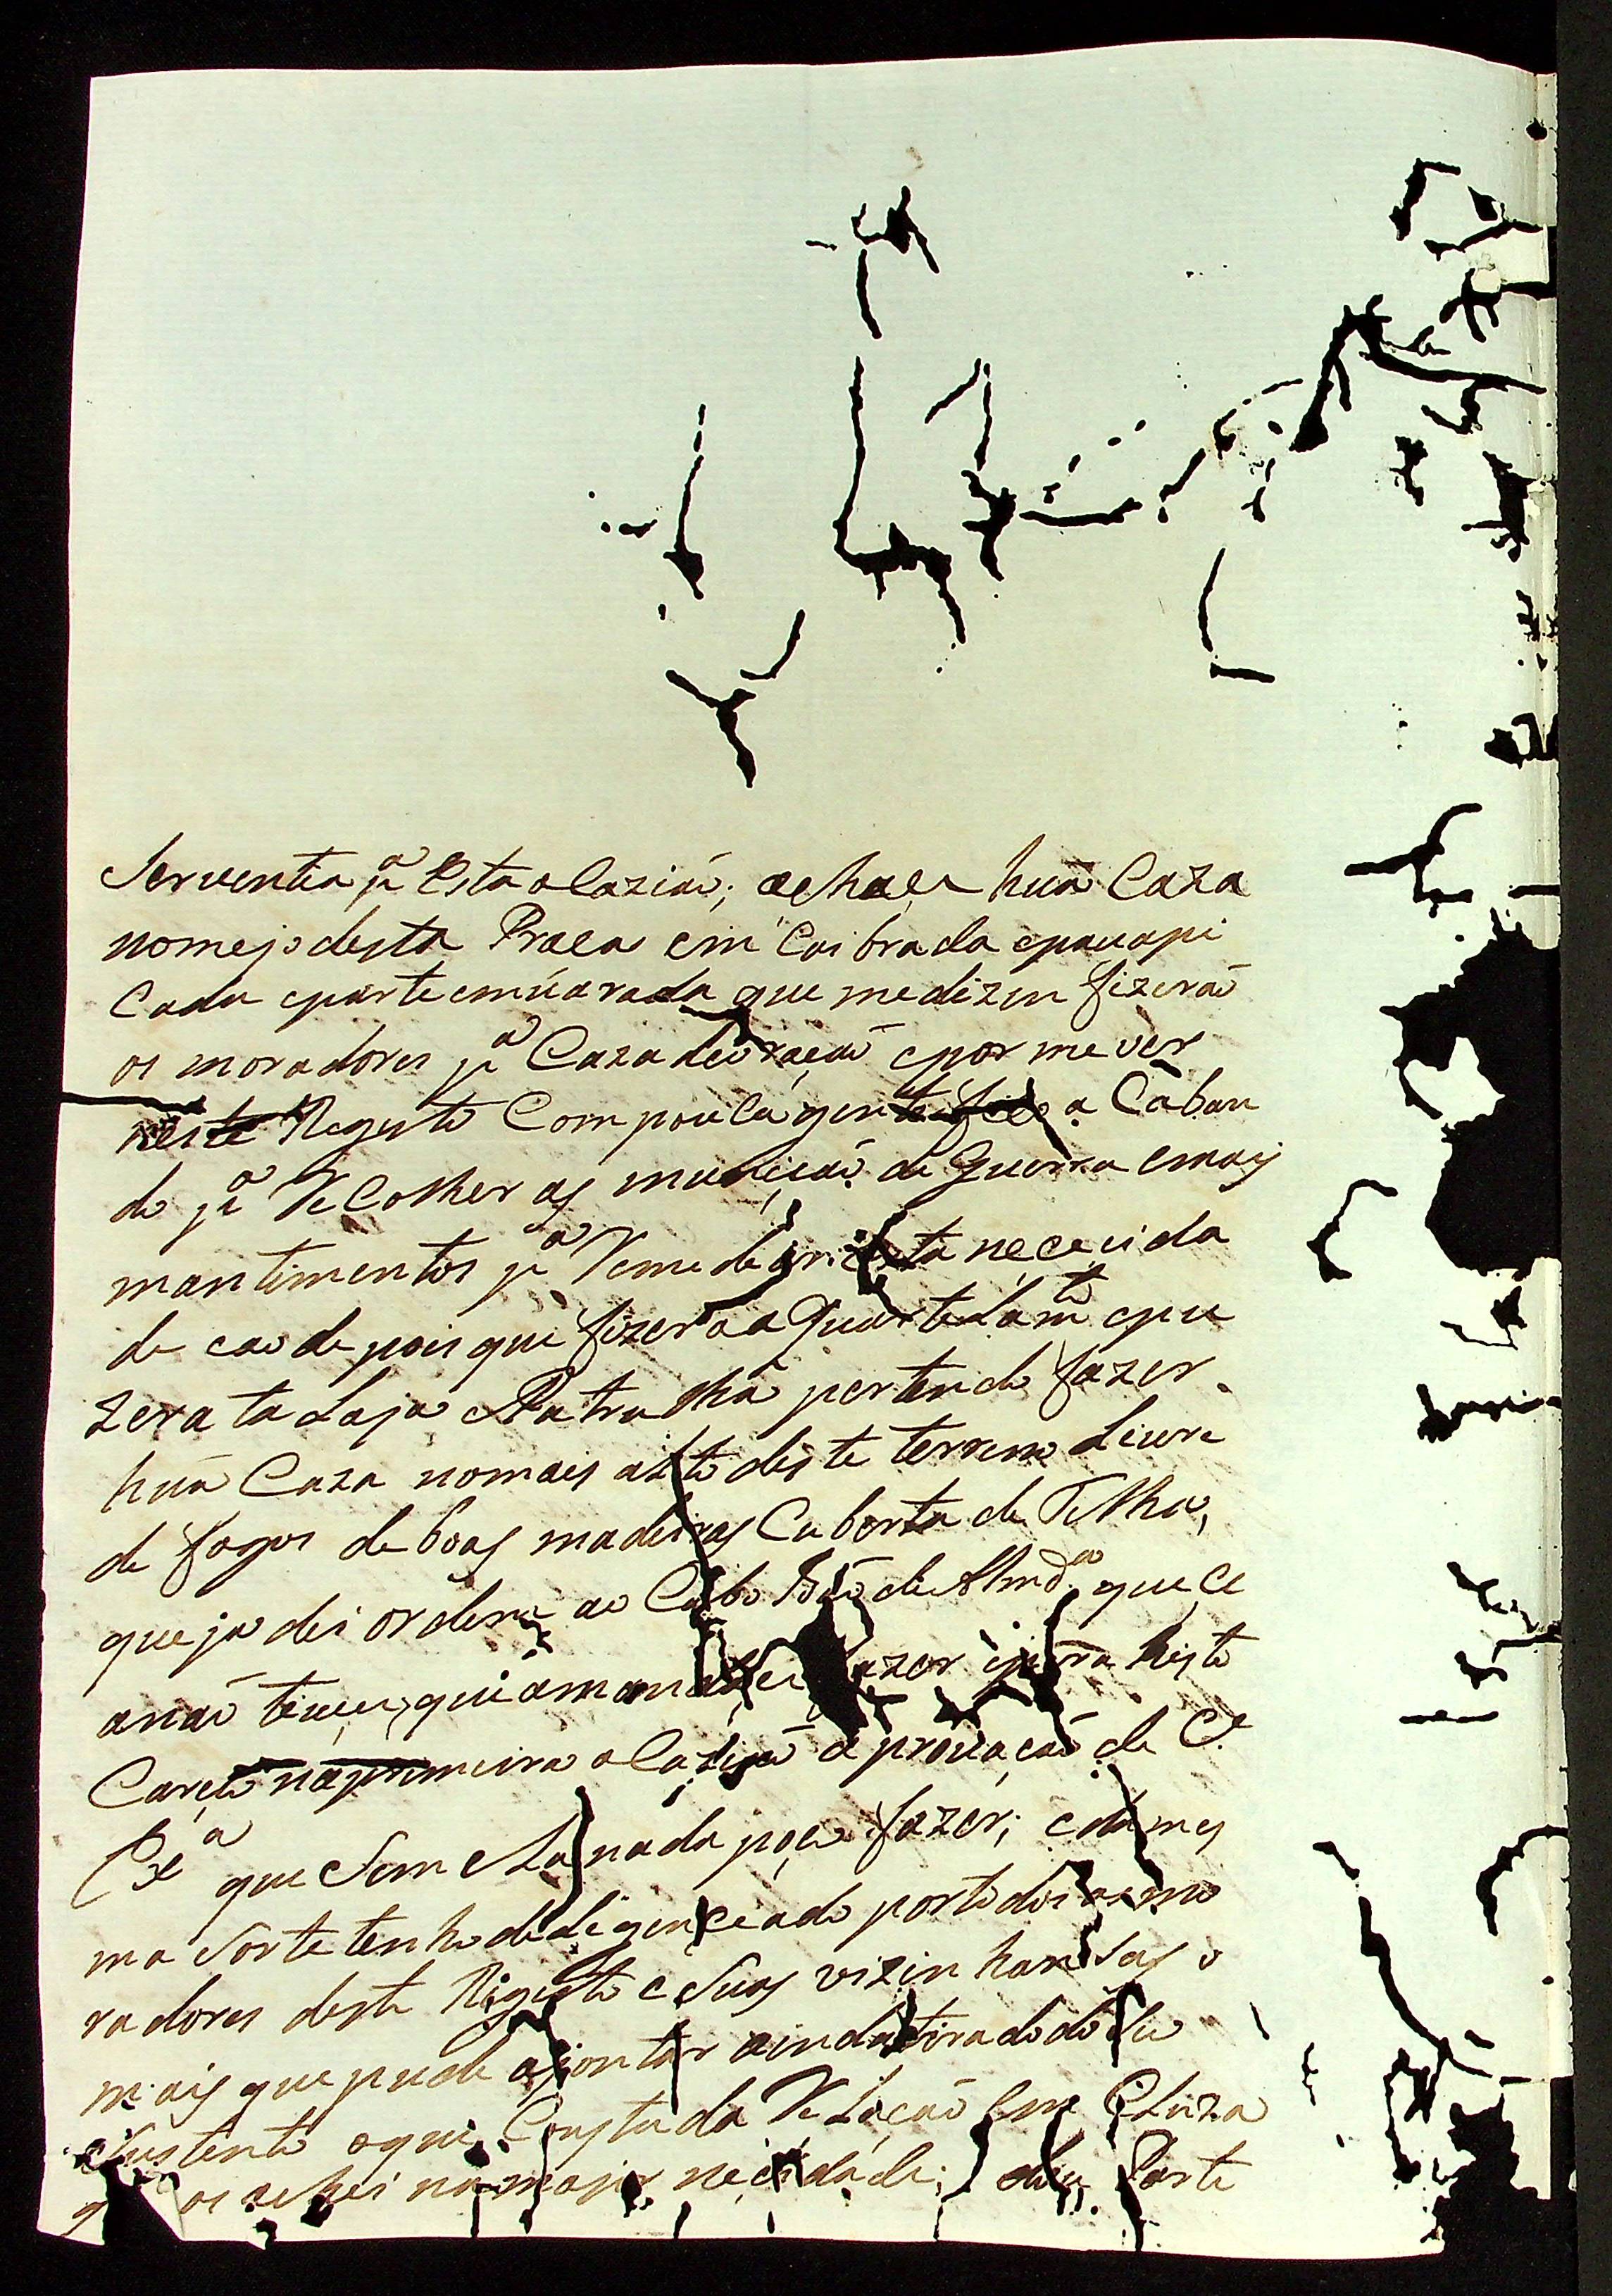 Serventia pª esta olaziaõ; achaça huã Caza
nomejo desta Praca em Caibrada epauapi
Cada eparte emuarada que medizen fizeraõ
os moradores pª Caza deoraçaõ epor mever
neste Registo Com pouca gente faço a Caban
do pª Recolher as muniçaõ de Guerra emais
mantimentos pª Remedear esta nececida
de eao depois que fizer oa Quartelamto epu
zera ta Laja e Patrulha pertendo fazer
huã Caza nomais alto deste terreno Livre
de fogos de boas madeiras Cuberta de Telha,
que ja dei ordem ao Cabo de Almdª que ce
anaõ tiuer, que amandace fazer epara histo
Careço naprimeira olaziaõ aprouaçaõ de Cª
Exª que Sem ela nada poço fazer; edames
ma Sorte tenho deligenceado portodos osmo
radores deste Registo e Suas vizinhansas o
mais que pude ajontar ainda tirado do Seu
Sustento oque Consta da Relaçaõ em Cluza
os achei na major necidade; deu Parte